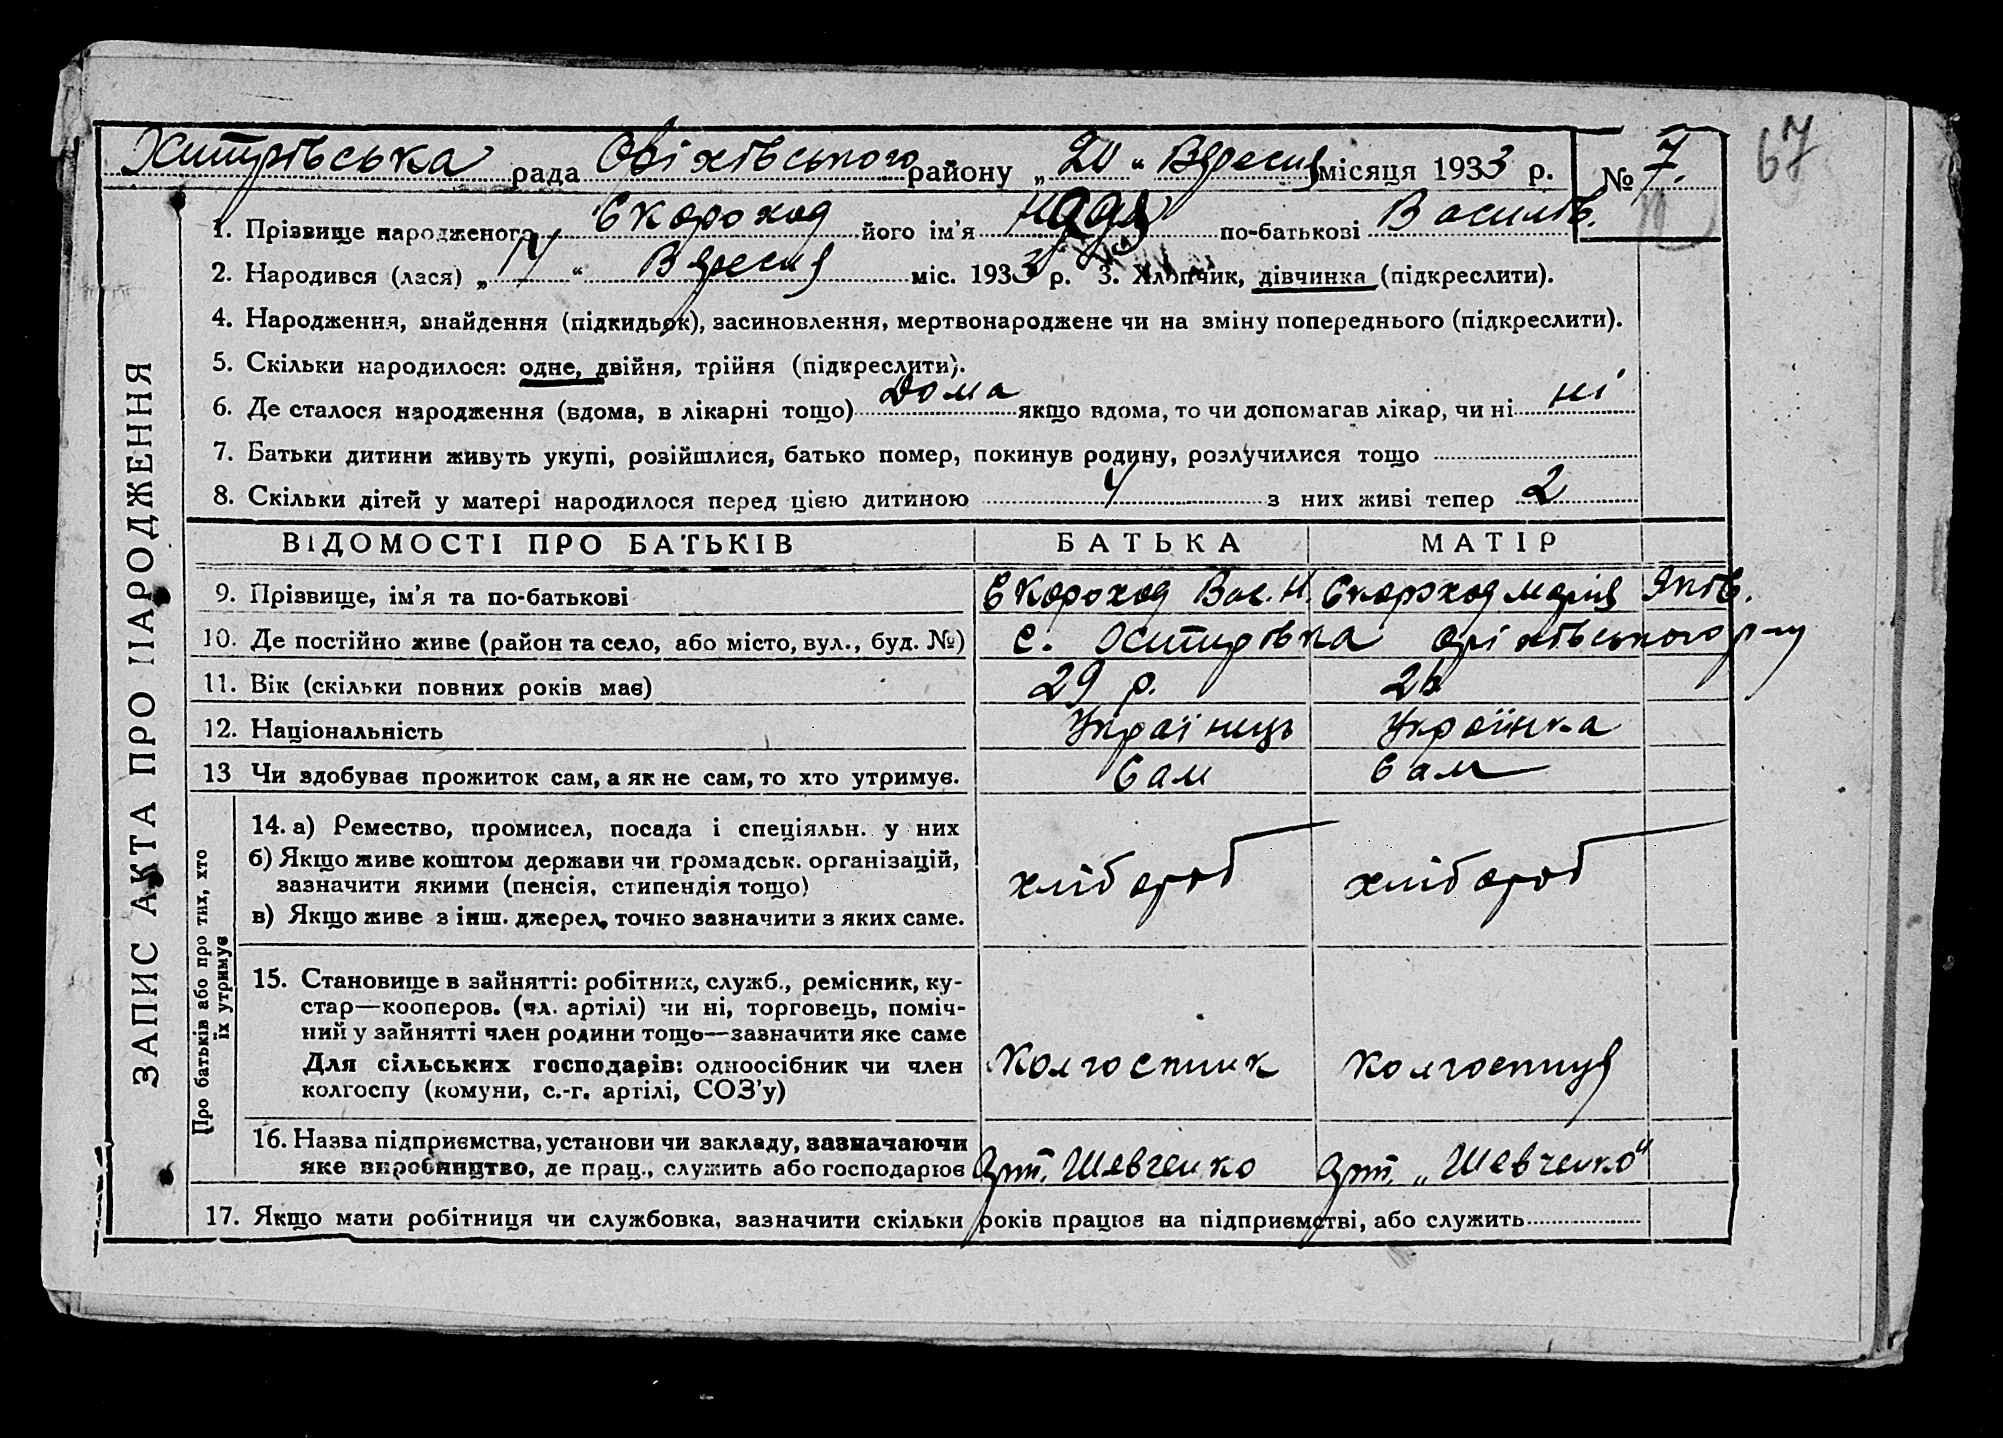 Хитрівська рада Оріхівського району „20“ Вересня місяця 1933 р. № 7.
67
1. Прізвище народженого Скороход його ім'я Надя по-батькові Василів.
2. Народився (лася) „ “ Вересня міс. 1933 р. 3. Хлопчик, дівчинка (підкреслити).
4. Народження, знайдення (підкидьок), засиновлення, мертвонароджене чи на зміну попереднього (підкреслити).
5. Скільки народилося: одне, двійня, трійня (підкреслити).
6. Де сталося народження (вдома, в лікарні тощо) Дома якщо вдома, то чи допомагав лікар, чи ні ні
7. Батьки дитини живуть укупі, розійшлися, батько помер, покинув родину, розлучилися тощо
8. Скільки дітей у матері народилося перед цією дитиною 4 з них живі тепер 2
ЗАПИС АКТА ПРО НАРОДЖЕННЯ
ВІДОМОСТІ ПРО БАТЬКІВ БАТЬКА МАТІР
9. Прізвище, ім'я та по-батькові Скороход Вас. Н. Скороход Марія Яків.
10. Де постійно живе (район та село, або місто, вул., буд. №) с. Хитрівка Оріхівського р-ну
11. Вік (скільки повних років має) 29 р. 26
12. Національність Українець Українка
13 Чи здобуває прожиток сам, а як не сам, то хто утримує. Сам Сам
Про батьків або про тих, хто їх утримує
14. а) Ремество, промисел, посада і спеціяльн. у них
б) Якщо живе коштом держави чи громадськ. організацій,
зазначити якими (пенсія, стипендія тощо) хлібороб хлібороб
в) Якщо живе з інш. джерел, точно зазначити з яких саме.
15. Становище в зайнятті: робітник, служб., ремісник, ку-
стар—кооперов. (чл. артілі) чи ні, торговець, поміч-
ний у зайнятті член родини тощо—зазначити яке саме
Для сільських господарів: одноосібник чи член Колгоспник колгоспниця
колгоспу (комуни, с.-г. артілі, СОЗ'у)
16. Назва підприємства, установи чи закладу, зазначаючи
яке виробництво, де прац., служить або господарює Арт. Шевченко Арт. „Шевченко"
17. Якщо мати робітниця чи службовка, зазначити скільки років працює на підприємстві, або служить